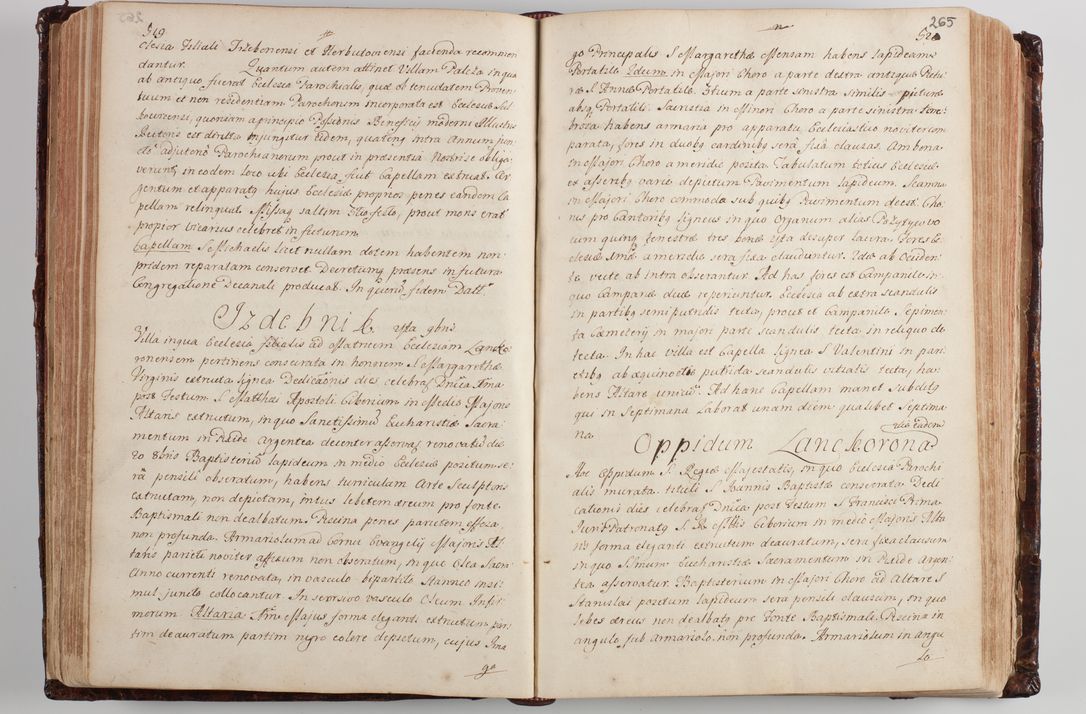 519
clesia Filiali Trzebonensi et Herbutowiensi facienda recommen
dantur. Quantum autem attinet Villam Palcza in qua
ab antiquo fuerat Ecclesia Parochialis, quæ ob tenuitatem Proven
tuum et non residentiam Parochorum incorporata est Ecclesiæ Sul
kowicensi, quoniam a principio Possessionis Beneficij moderni Illustris
Rectoris est districte injungitur Eidem, quatenq intra Annum
adjutorio Parochianorum prout in præsentia Nostri se obliga
verunt in eodem loco ubi Ecclesia fuit Capellam extruat. Ar
gentum et apparatq hujus Ecclesiæ proprios penes eandem Ca
pellam relinquat. Missaq saltem prout mons erat
propior vicarius celebret in futurum
Capellam S. Michaelis licet nullam dotem habentem non
pridem reparatam conservet Decretumq præsens in futura
Congregatione Decanali producat. In quorū fidem Datt.
Izdebnik
Villa in qua Ecclesia filialis ad Matricem Ecclesiam Lancko
ronensem pertinens consecrata in honorem S. Margarethæ
Virginis extructa lignea Dedicaōnis dies celebrat Dnica Ima
post Festum S. Matthæi Apostoli Ciborium in Medio Majoris
Altaris extructum, in quo Sanctissimū Eucharistiæ Sacra
mentum in Pixide argentea decenter asservat renovatū die
20 Baptisteriū lapideum in medio Ecclesiæ positum se
rā pensili obseratum, habens turriculam Arte Sculptoris
extructam, non depictam, intus lebetem æreum pro fonte
Baptismali non dealbatum. Piscina penes parietem effosa
non profunda. Armariolum a Cornu Evangelij Majoris Al
taris parieti noviter affixum non obseratum, in quo Olea Sacra
Anno currenti renovata, in vasculo bipartito Stanneo insi
mul juncto collocantur. In seorsivo vasculo Oleum Infir
morum. Altaria Im Majus forma eleganti extructum par
tim deauratum partim nigro colore depictum, cujus Ima
go
265
520
go Principalis S. Margarethæ Mensam habens lapideam
Portatile. 2dum in Majori Choro a parte dextra antiquæ Pictu
ræ S. Annæ Portatile. 3tium a parte sinistra similis picturæ
absq Portatili. Sacristia in Minori Choro a parte sinistra tene
brosa habens armaria pro apparatu Ecclesiastico noviter com
parata, fores in duobq cardinibq serā fixā clausas. Ambona
in Majori Choro a meridie posita. Tabulatum totius Ecclesiæ
ex asseribq varie depictum Pavimentum lapideum. Scamna
in Majori Choro commoda sub quibq Pavimentum deest. Cho
rus pro Cantoribq ligneus in quo Organum alias Pozytyw o
cum quinq fenestræ tres bonæ desuper lacera. Fores Ec
clesiæ unæ a meridie sera fixa clauduntur. 2dæ ab Occiden
te vecte ab intra obserantur. Ad has fores est Campanile in
quo Campanæ duæ reperiuntur. Ecclesia ab extra scandulis
in partibq semiputridis tecta, prout et Campanile Sepimen
ta Cæmeterij in majori parte scandulis tecta in reliquo de
tecta. In hac villa est Capella lignea S. Valentini in pari
etibq ab æquinoctio putrida scandulis vitiatis tecta, ha
bens Altare unicū. Ad hanc Capellam manet subditq
qui in Septimana laborat unam diem qualibet Septima
na. die eadem
Oppidum Lanckorona
Hoc Oppidum S. Regiæ Majestatis, in quo Ecclesia Parochi
alis murata tituli S. Joannis Baptistæ consecrata Dedi
cationis dies celebrat Dnica post Festum S. Francisci Prima.
Juris Patronatq S. R. Mttis Ciborium in medio Majoris Alta
ris forma eleganti extructum deauratum, sera fixa clausum
in quo SSmum Eucharistiæ Sacramentum in Pixide argen
tea asservatur. Baptisterium in Majori Choro ad Altare S.
Stanislai positum lapideum sera pensili clausum, in quo
lebes æreus non dealbatq pro Fonte Baptismali. Piscina in
angulo sub armariolo non profunda. Armariolum in angu
lo